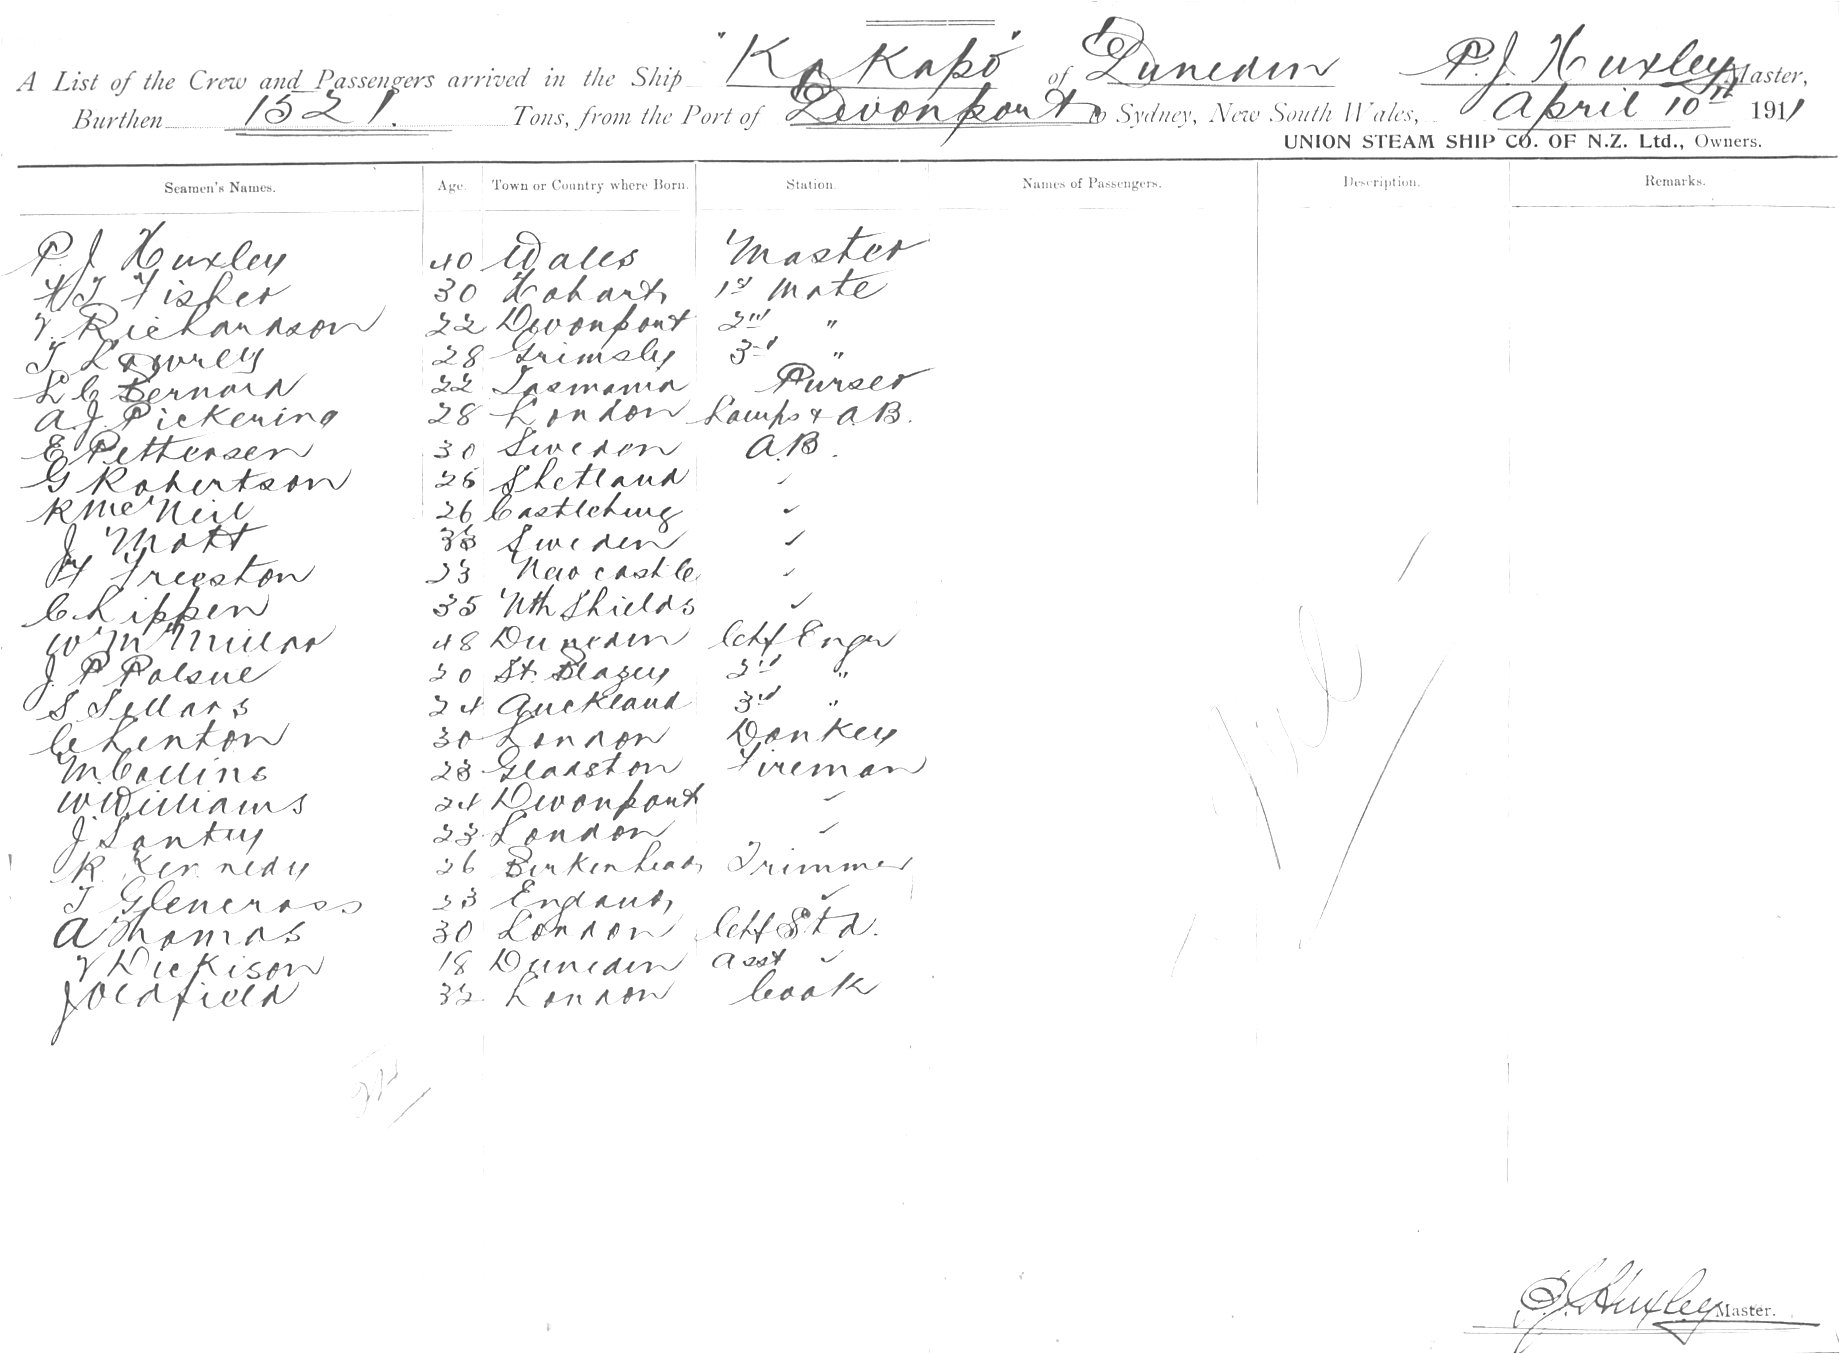 A List of the Crew and Passengers arrived in the Ship "Kakapo" of Dunedin P.J. Huxley Master,
Burthen 1521. Tons, from the Port of Devonport to Sydney, New South Wales, April 10th 1911
UNION STEAM SHIP CO. OF N.Z. Ltd., Owners.
Seamen's Names. Age. Town or Country where Born. Station. Names of Passengers. Description. Remarks.
P. J. Huxley 40 Wales Master
Fisher 30 Hobart 1st Mate
Richardson 22 Devonport 2nd "
T Lowrey 28 Grimsby 3rd "
L C Bernard 22 Tasmania Purser
A. J. Pickering 28 London Lamps & A.B.
E Pettersen 30 Sweden A.B.
G Robertson 26 Shetland ✓
R McNeil 26 ✓
J Matt Sweden ✓
H Freeston 23 Newcastle ✓
C Lippen 35 Nth Shields ✓
W M Millar 48 Dunedin Chf Engr
J. P Polsue 30 St. Blazey 2nd "
S Sellars 24 Auckland 3rd "
C Lenton 30 London Donkey
M. Collins 23 Gladston Fireman
W Williams 24 Devonport ✓
J Santry 23 London ✓
R Kennedy 26 Birkenhead Trimmer
T Glencross 23 England ✓
A Thomas 30 London Chf Std.
Dickison 18 Dunedin Asst ✓
J Oldfield 32 London Cook
Nil
P.J. Huxley Master.